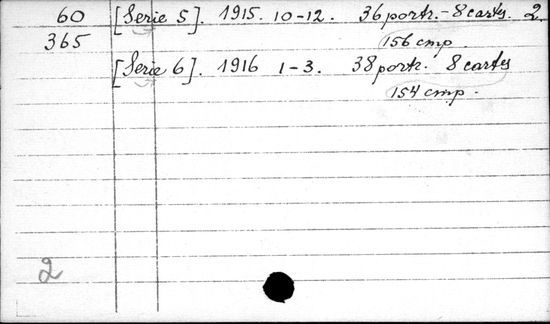 60 [Serie 5]. 1915. 10-12. 36 portr. - 8 cartes. 2
365 156 стр.
[Serie 6]. 1916 1-3. 38 portr. 8 cartes
154 стр.
2